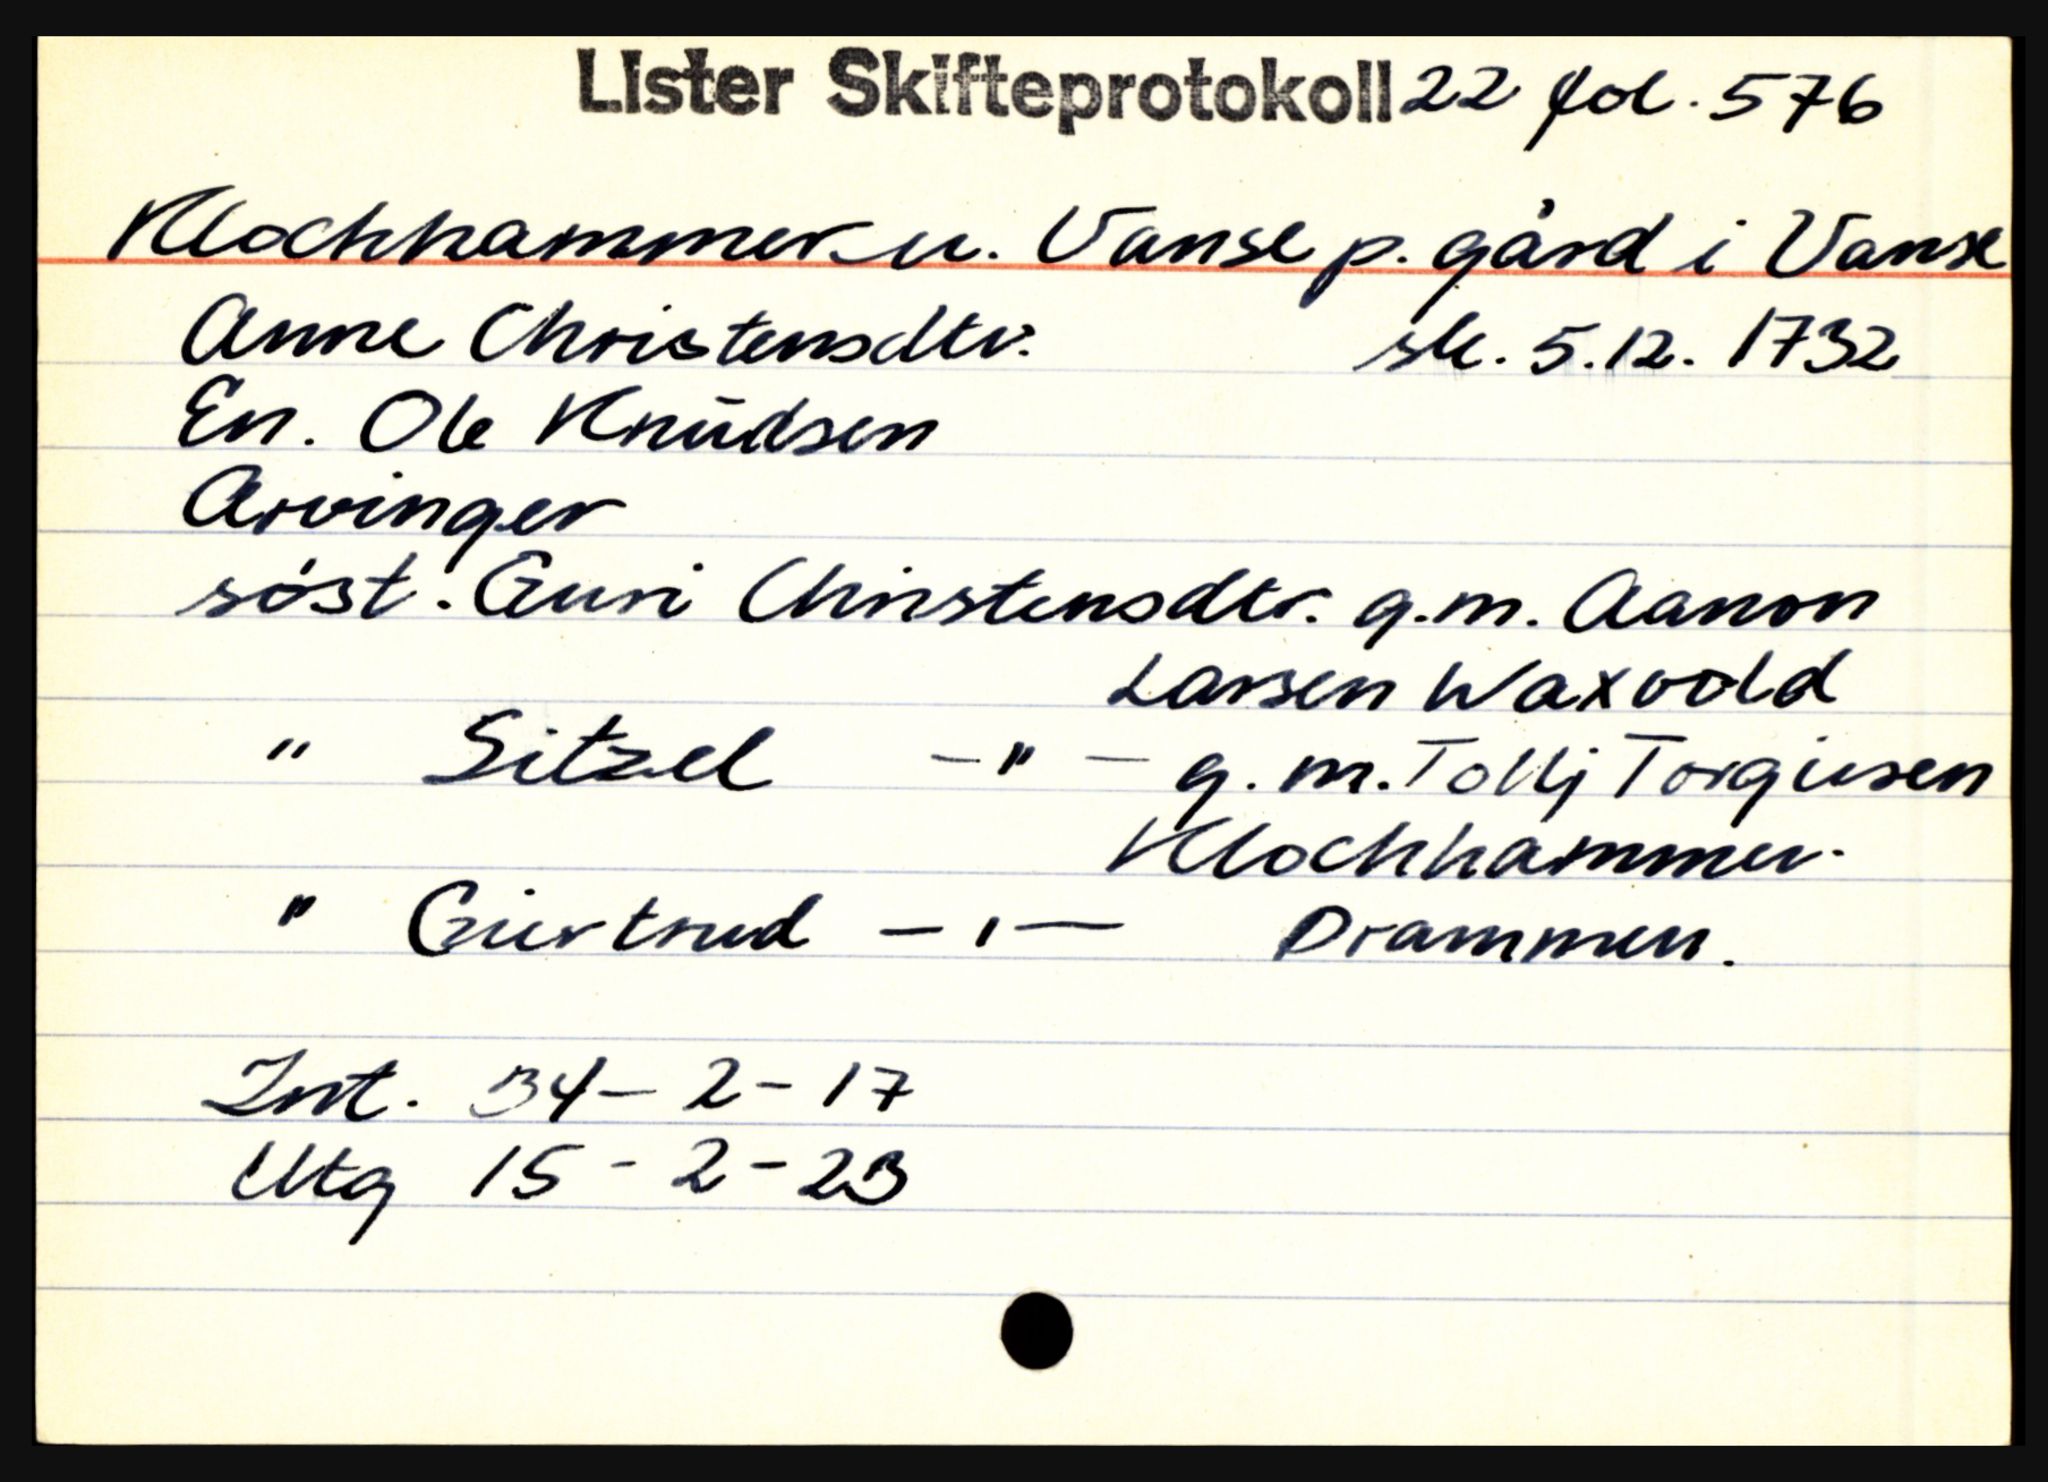 Lister Skifteprotokoll 22 fol. 576
Klochhammer u. Vanse p. gård i Vanse
Anne Christensdtr. sk. 5.12. 1732
En. Ole Knudsen
Arvinger
søst. Guri Christensdtr. g.m. Aanon
Larsen Waxvold
" Sitzel —"— g.m. Tollj Torgiusen
Klochhammer.
" Giertrud —"— Drammen.
Int. 34 – 2 – 17
Utg 15 – 2 – 23